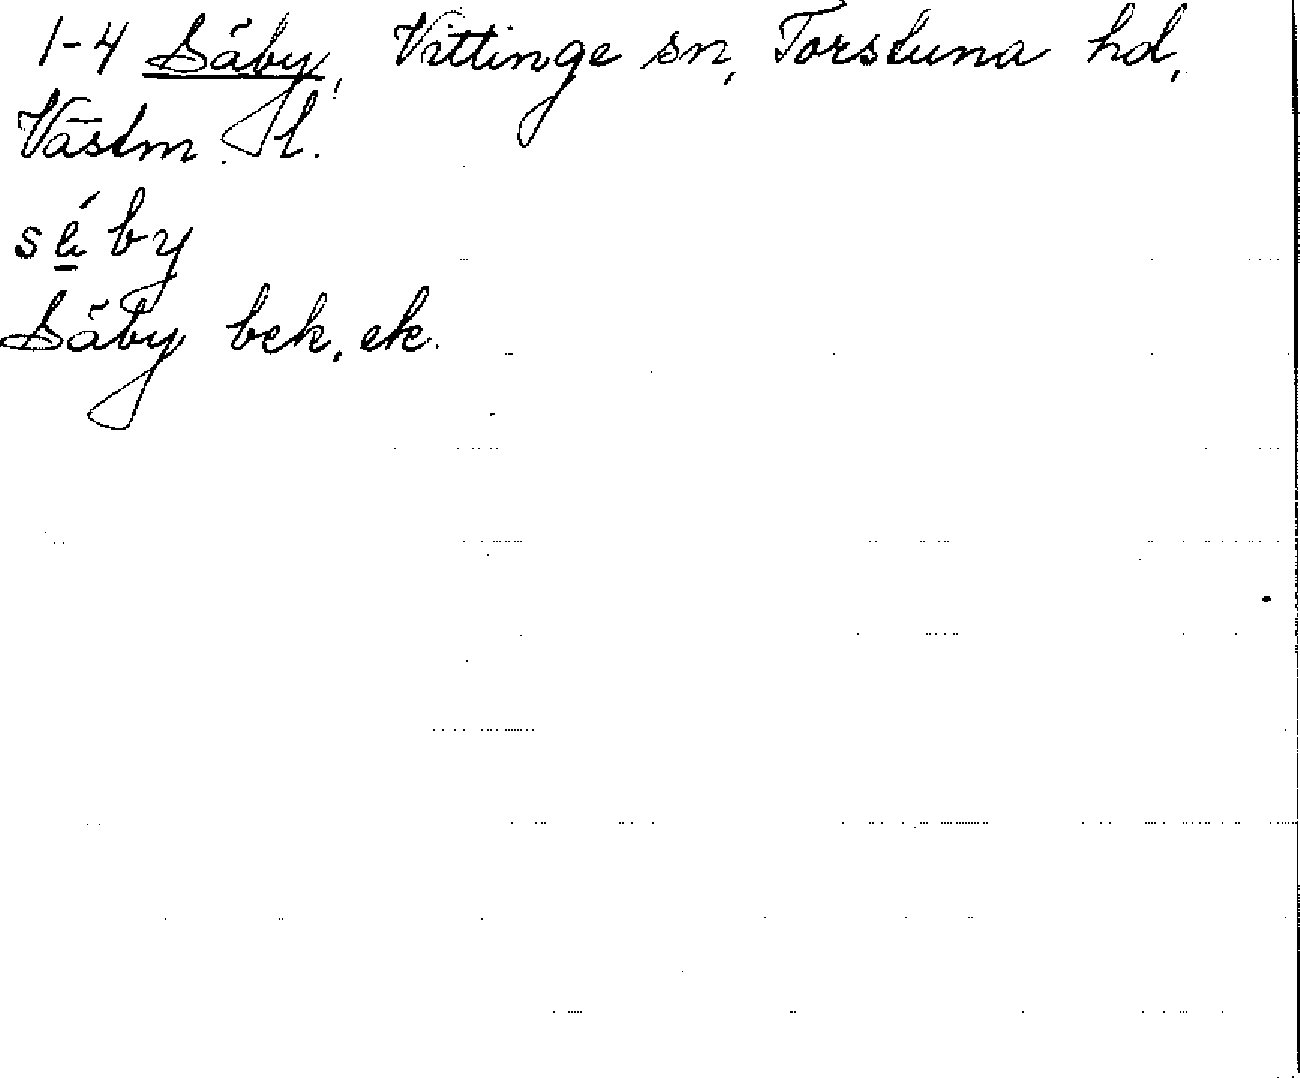 1-4 Säby, Vittinge sn, Torstuna hd,
Västm. l.
by
Säby bek, ek.